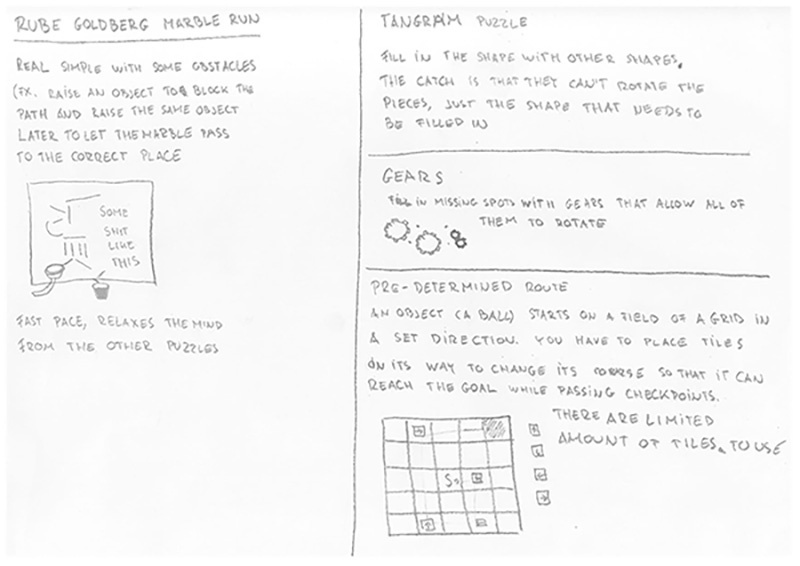 RUBE GOLDBERG MARBLE RUN
REAL SIMPLE WITH SOME OBSTACLES
(FX. RAISE AN OBJECT TO BLOCK THE
PATH AND RAISE THE SAME OBJECT
LATER TO LET THE MARBLE PASS
TO THE CORRECT PLACE
SOME
SHIT
LIKE
THIS
FAST PACE, RELAXES THE MIND
FROM THE OTHER PUZZLES
TANGRAM PUZZLE
FILL IN THE SHAPE WITH OTHER SHAPES.
THE CATCH IS THAT THEY CAN'T ROTATE THE
PIECES, JUST THE SHAPE THAT NEEDS TO
BE FILLED IN
GEARS
FILL IN MISSING SPOTS WITH GEARS THAT ALLOW ALL OF
THEM TO ROTATE
PRE-DETERMINED ROUTE
AN OBJECT (A BALL) STARTS ON A FIELD OF A GRID IN
A SET DIRECTION. YOU HAVE TO PLACE TILES
ON ITS WAY TO CHANGE ITS COURSE SO THAT IT CAN
REACH THE GOAL WHILE PASSING CHECKPOINTS.
THERE ARE LIMITED
AMOUNT OF TILES TO USE
S